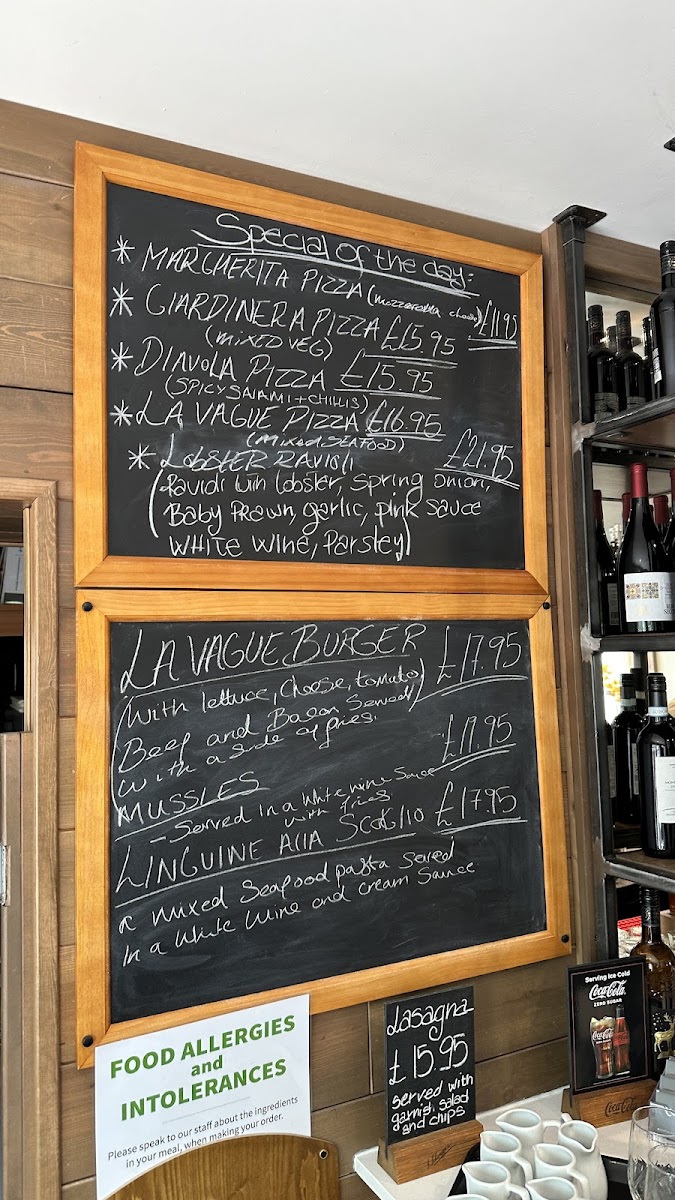 Special of the day:
* MARGHERITA PIZZA (mozzerella cheese) £11.95
* GIARDINERA PIZZA £15.95
(MIXED VEG)
* DIAVOLA PIZZA £15.95
(SPICY SALAMI + CHILLIS)
* LA VAGUE PIZZA £16.95
(MIXED SEAFOOD)
* LOBSTER RAVIOLI £21.95
(Ravioli with lobster, spring onion,
Baby Prawn, garlic, pink sauce
WHITE WINE, Parsley)
LA VAGUE BURGER £17.95
(with lettuce, cheese, tomato,
Beef and Bacon Served)
with a side of fries.
MUSSLES £17.95
- Served in a white wine Sauce
with fries
LINGUINE AllA SCOGlIO £17.95
A mixed Seafood pasta served
In a white wine and cream sauce
FOOD ALLERGIES
and
INTOLERANCES
Please speak to our staff about the ingredients
in your meal, when making your order.
Lasagna
£15.95
served with
garnish, salad
and chips
Serving Ice Cold
Coca-Cola
ZERO SUGAR
Coca-Cola